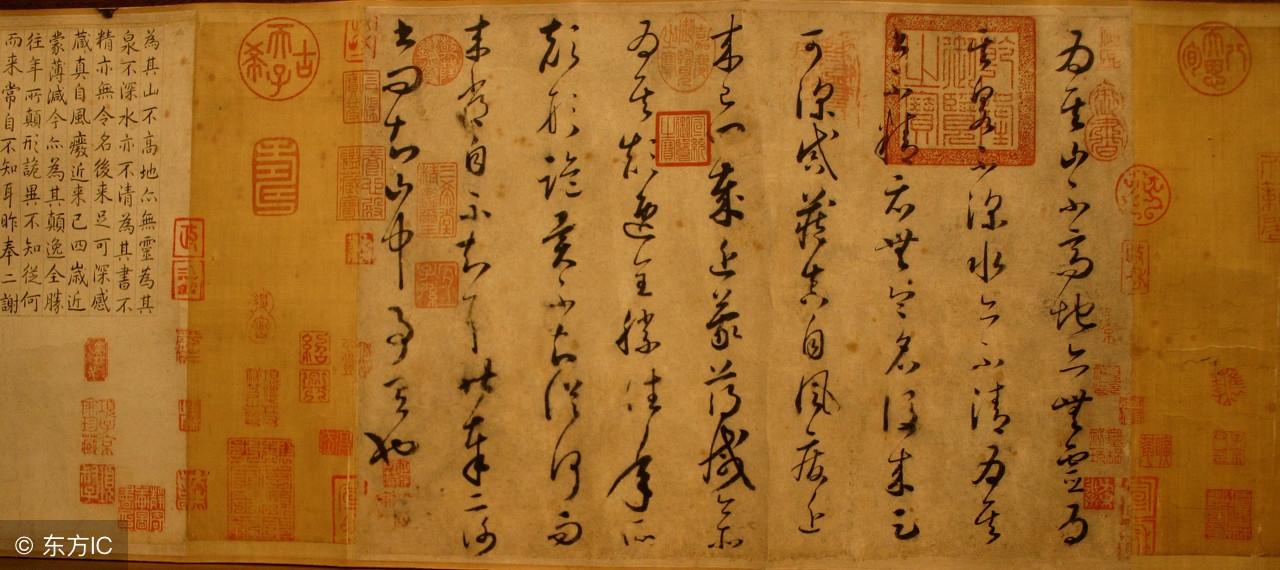 天恩八旬
為其山不高地亦無靈為
其泉不深水亦不清為其
書不精亦無令名後來足
可深感藏真自風癈近
來已四歲近蒙薄減今亦
為其顛逸全勝往年所
顛形詭異不知從何而
來常自不知耳昨奉二謝
書問知山中事有也
乾隆御覽之寶
古希天子
為其山不高地亦無靈為其
泉不深水亦不清為其書不
精亦無令名後來足可深感
藏真自風癈近来已四歲近
蒙薄減今亦為其顛逸全勝
往年所顛形詭異不知從何
而来常自不知耳昨奉二謝
© 东方IC